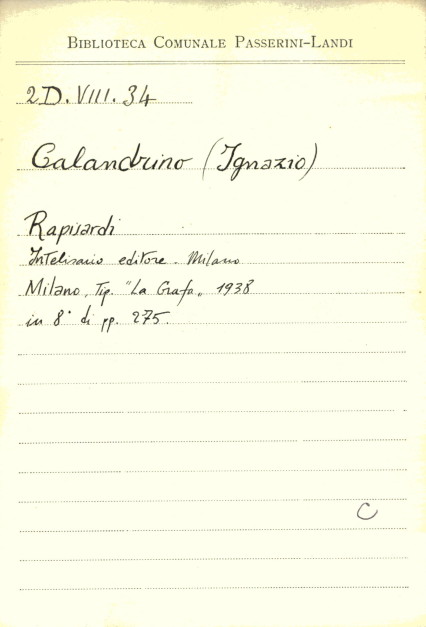 BIBLIOTECA COMUNALE PASSERINI-LANDI
2D. VIII. 34
Calandrino (Ignazio)
Rapisardi
Intelisano editore. Milano
Milano, Tip. "La Grafa" 1938
in 8° di pp. 275.
C